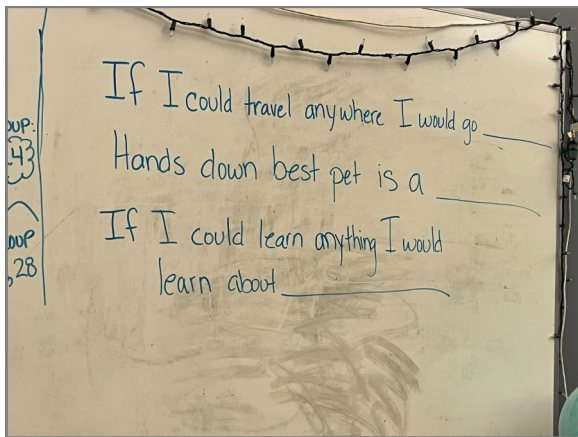 OUP:
43
OUP
, 28
If I could travel anywhere I would go ____
Hands down best pet is a ____
If I could learn anything I would
learn about ____